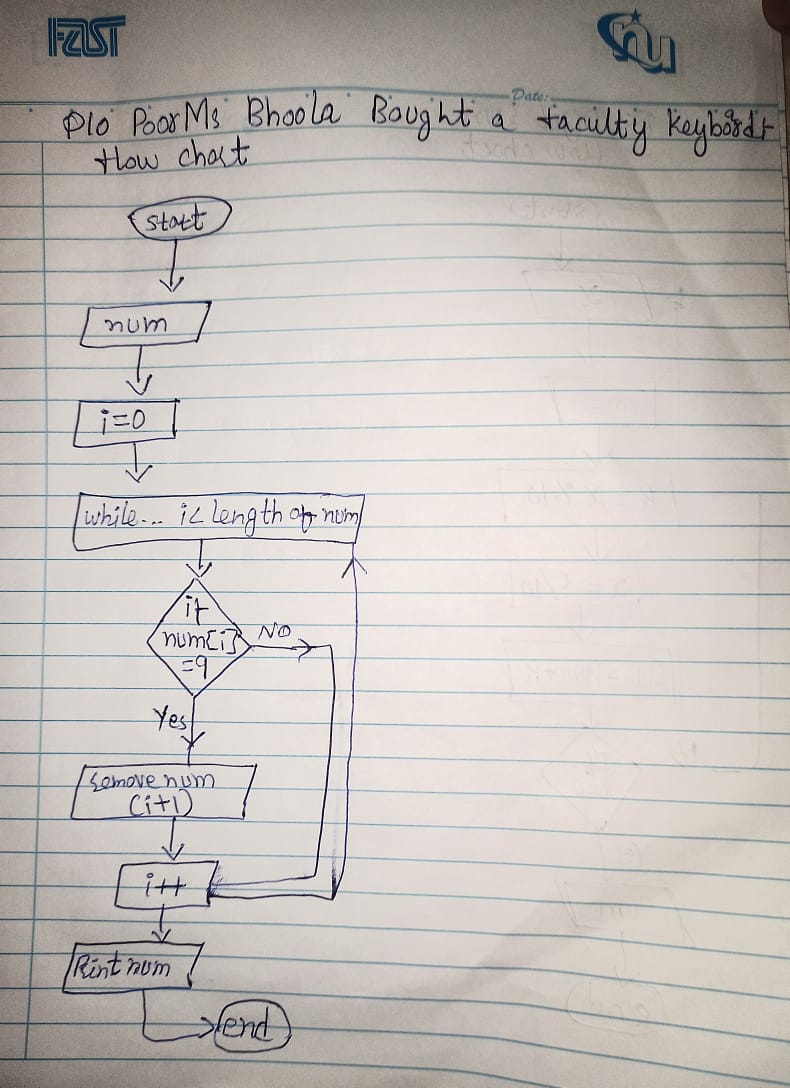 FAST
nu
Date:
P10 Poor Ms Bhoola Bought a faculty keyboard
flow chart
start
num
i=0
while... i< length of num
if
num[i]
=9
NO
Yes
remove num
(i+1)
i++
Print num
end